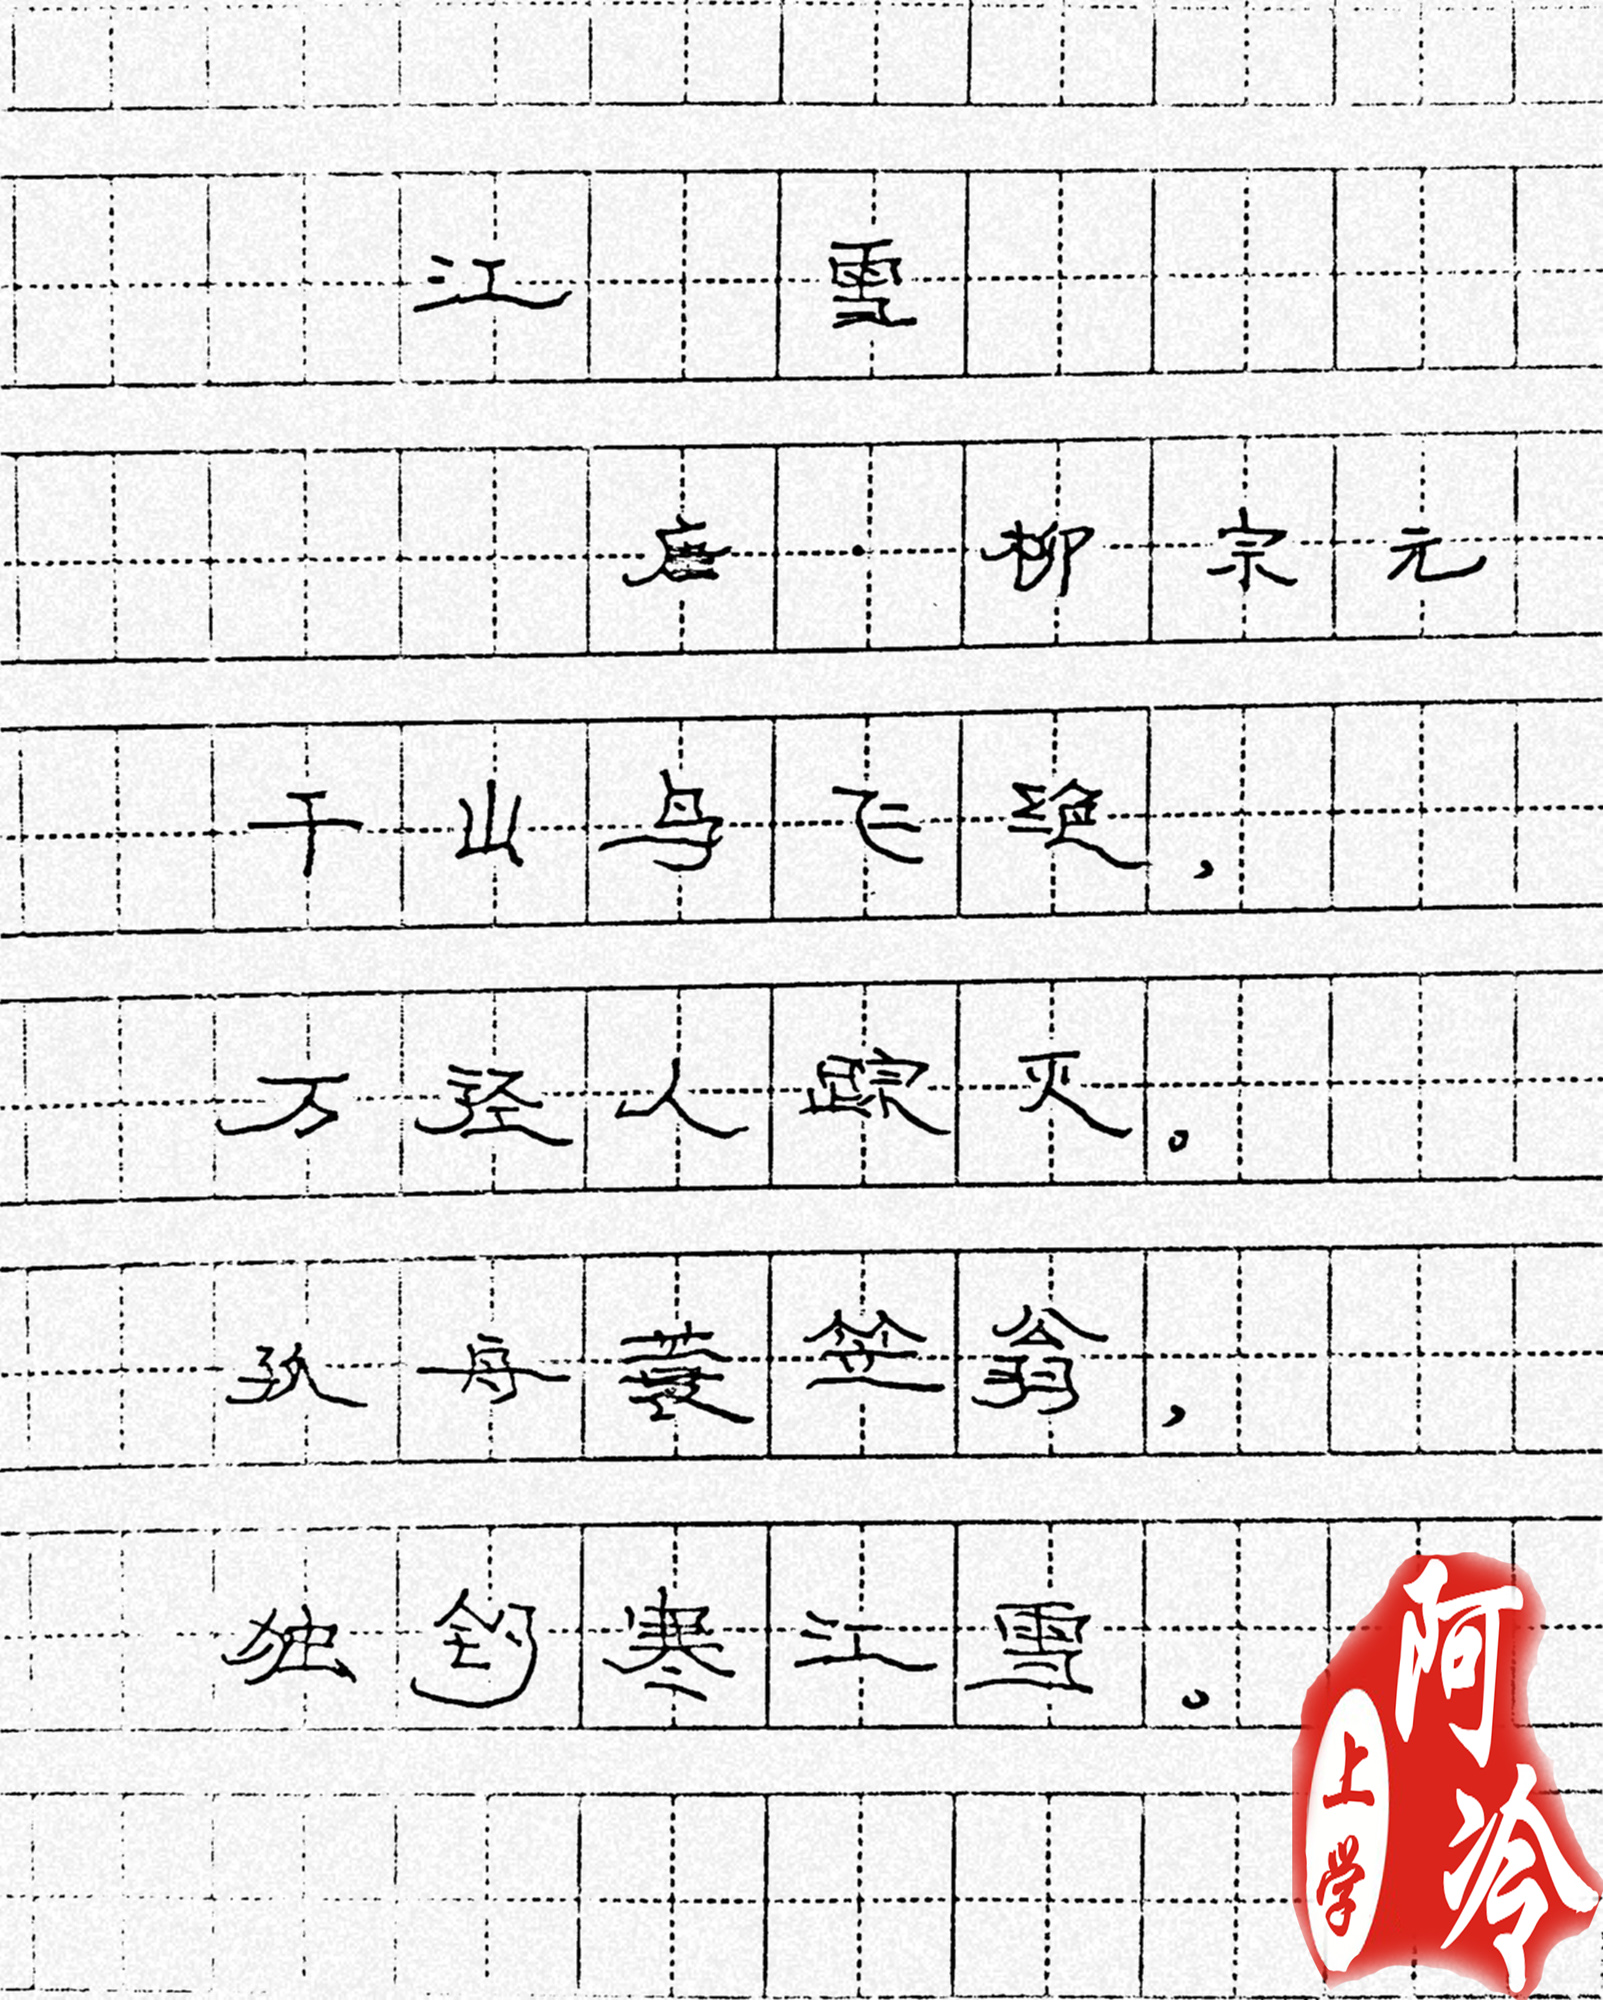 江雪
唐·柳宗元
千山鸟飞绝，
万径人踪灭。
孤舟蓑笠翁，
独钓寒江雪。
阿冷
上学